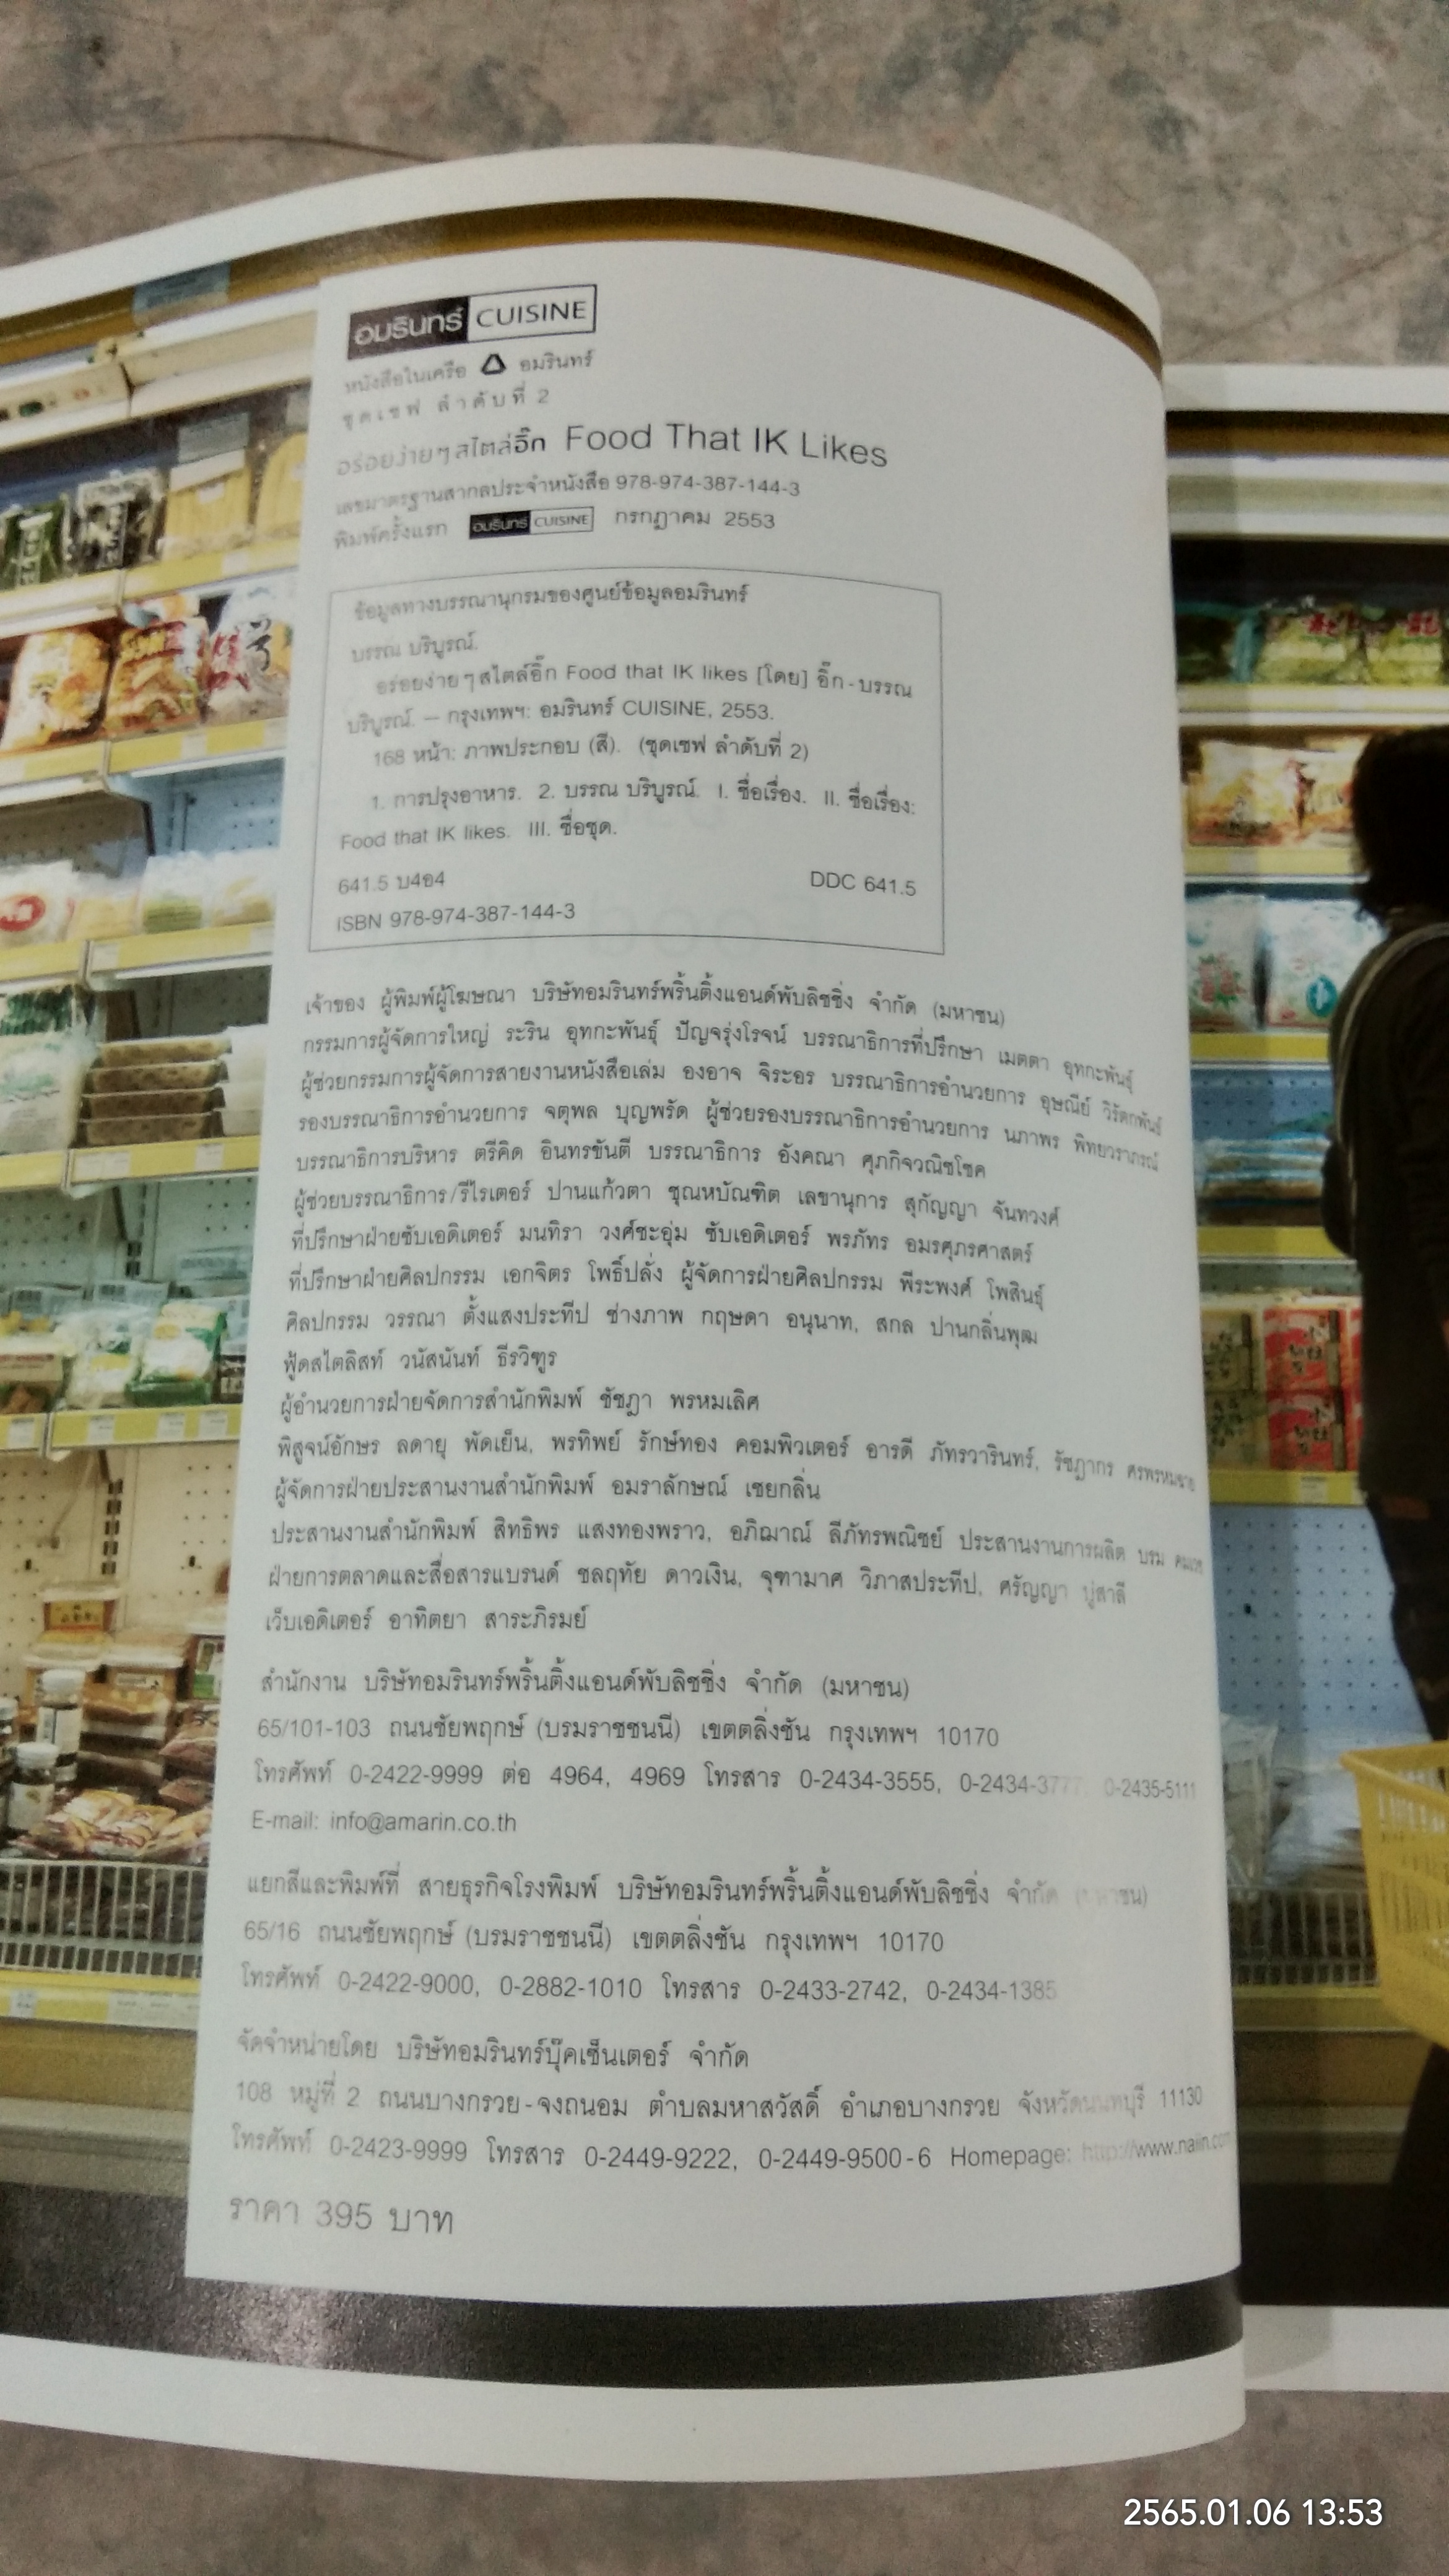 อมรินทร์ CUISINE
หนังสือในเครือ อมรินทร์
ชุดเชฟ ลำดับที่ 2
อร่อยง่ายๆ สไตล์อิ๊ก Food That IK Likes
เลขมาตรฐานสากลประจำหนังสือ 978-974-387-144-3
พิมพ์ครั้งแรก อมรินทร์ CUISINE กรกฎาคม 2553
ข้อมูลทางบรรณานุกรมของศูนย์ข้อมูลอมรินทร์
บรรณ บริบูรณ์.
อร่อยง่ายๆ สไตล์อิ๊ก Food that IK likes [โดย] อิ๊ก-บรรณ
บริบูรณ์. – กรุงเทพฯ: อมรินทร์ CUISINE, 2553.
168 หน้า: ภาพประกอบ (สี). (ชุดเชฟ ลำดับที่ 2)
1. การปรุงอาหาร. 2. บรรณ บริบูรณ์. I. ชื่อเรื่อง. II. ชื่อเรื่อง:
Food that IK likes. III. ชื่อชุด.
641.5 บ4อ4 DDC 641.5
ISBN 978-974-387-144-3
เจ้าของ ผู้พิมพ์ผู้โฆษณา บริษัทอมรินทร์พริ้นติ้งแอนด์พับลิชชิ่ง จำกัด (มหาชน)
กรรมการผู้จัดการใหญ่ ระริน อุทกะพันธุ์ ปัญจรุ่งโรจน์ บรรณาธิการที่ปรึกษา เมตตา อุทกะพันธุ์
ผู้ช่วยกรรมการผู้จัดการสายงานหนังสือเล่ม องอาจ จิระอร บรรณาธิการอำนวยการ อุษณีย์ วิรัตกพันธ์
รองบรรณาธิการอำนวยการ จตุพล บุญพรัด ผู้ช่วยรองบรรณาธิการอำนวยการ นภาพร พิทยวราภรณ์
บรรณาธิการบริหาร ตรีคิด อินทรขันตี บรรณาธิการ อังคณา ศุภกิจวณิชโชค
ผู้ช่วยบรรณาธิการ/รีไรเตอร์ ปานแก้วตา ชุณหบัณฑิต เลขานุการ สุกัญญา จันทวงศ์
ที่ปรึกษาฝ่ายซับเอดิเตอร์ มนทิรา วงศ์ชะอุ่ม ซับเอดิเตอร์ พรภัทร อมรศุภรศาสตร์
ที่ปรึกษาฝ่ายศิลปกรรม เอกจิตร โพธิ์ปลั่ง ผู้จัดการฝ่ายศิลปกรรม พีระพงศ์ โพสินธุ์
ศิลปกรรม วรรณา ตั้งแสงประทีป ช่างภาพ กฤษดา อนุนาท, สกล ปานกลิ่นพุฒ
ฟู้ดสไตลิสท์ วนัสนันท์ ธีรวิฑูร
ผู้อำนวยการฝ่ายจัดการสำนักพิมพ์ ชัชฎา พรหมเลิศ
พิสูจน์อักษร ลดายุ พัดเย็น, พรทิพย์ รักษ์ทอง คอมพิวเตอร์ อารดี ภัทรวารินทร์, รัชฎากร
ผู้จัดการฝ่ายประสานงานสำนักพิมพ์ อมราลักษณ์ เชยกลิ่น
ประสานงานสำนักพิมพ์ สิทธิพร แสงทองพราว, อภิฌาณ์ ลีภัทรพณิชย์ ประสานงานการผลิต บรม
ฝ่ายการตลาดและสื่อสารแบรนด์ ชลฤทัย ดาวเงิน, จุฑามาศ วิภาสประทีป, ศรัญญา ปู่สาลี
เว็บเอดิเตอร์ อาทิตยา สาระภิรมย์
สำนักงาน บริษัทอมรินทร์พริ้นติ้งแอนด์พับลิชชิ่ง จำกัด (มหาชน)
65/101-103 ถนนชัยพฤกษ์ (บรมราชชนนี) เขตตลิ่งชัน กรุงเทพฯ 10170
โทรศัพท์ 0-2422-9999 ต่อ 4964, 4969 โทรสาร 0-2434-3555, 0-2434-3777, 0-2435-5111
E-mail: info@amarin.co.th
แยกสีและพิมพ์ที่ สายธุรกิจโรงพิมพ์ บริษัทอมรินทร์พริ้นติ้งแอนด์พับลิชชิ่ง จำกัด (มหาชน)
65/16 ถนนชัยพฤกษ์ (บรมราชชนนี) เขตตลิ่งชัน กรุงเทพฯ 10170
โทรศัพท์ 0-2422-9000, 0-2882-1010 โทรสาร 0-2433-2742, 0-2434-1385
จัดจำหน่ายโดย บริษัทอมรินทร์บุ๊คเซ็นเตอร์ จำกัด
108 หมู่ที่ 2 ถนนบางกรวย-จงถนอม ตำบลมหาสวัสดิ์ อำเภอบางกรวย จังหวัดนนทบุรี 11130
โทรศัพท์ 0-2423-9999 โทรสาร 0-2449-9222, 0-2449-9500-6 Homepage: http://www.naiin.com
ราคา 395 บาท
2565.01.06 13:53